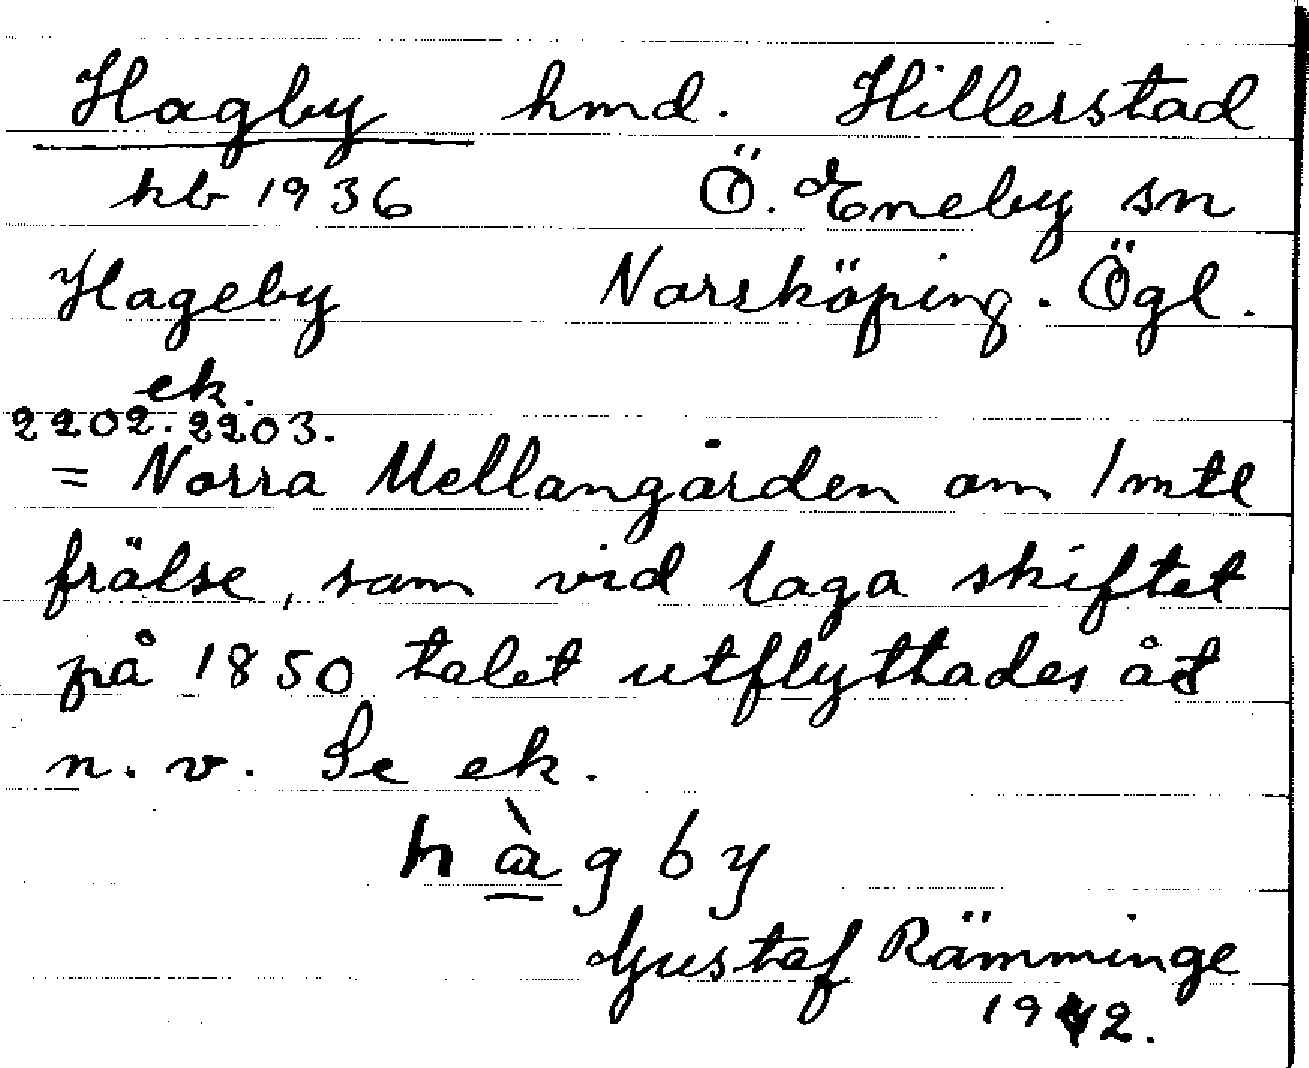 Hagby hmd. Hillerstad
kb 1936 Ö. Eneby sn
Hageby Norrköping. Ögl.
ek.
2202. 2203.
= Norra Mellangården om 1 mtl
frälse, som vid laga skiftet
på 1850 talet utflyttades åt
n. v. Se ek.
hàgby
Gustaf Rämminge
1942.